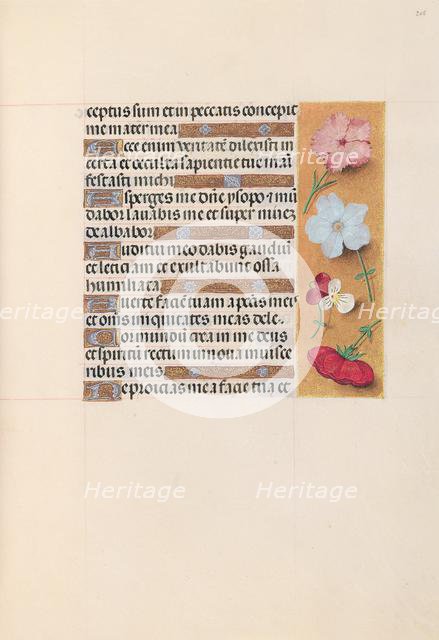 ceptus sum et in peccatis concepit
me mater mea
Ecce enim veritatē dilexisti in
certa et occulta sapientie tue maī
festasti michi
Asperges me dn̄e ysopo et mū
dabor lavabis me et super nivez
dealbabor
Auditui meo dabis gaudiū
et leticiam et exultabunt ossa
humiliata
Averte faciē tuam a peccatis meis
et om̄s iniquitates meas dele
Cor mundū crea in me deus
et spiritū rectum innova in visce
ribus meis
Ne proicias me a facie tua et
Heritage
Heritage
Heritage
Heritage